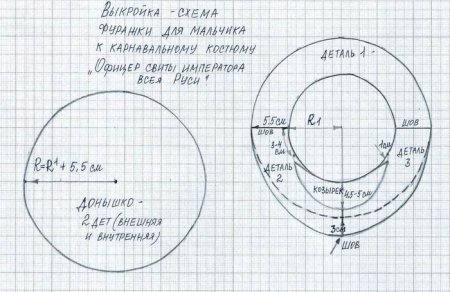 ВЫКРОЙКА - СХЕМА
ФУРАЖКИ ДЛЯ МАЛЬЧИКА
К КАРНАВАЛЬНОМУ КОСТЮМУ
„ОФИЦЕР СВИТЫ ИМПЕРАТОРА
ВСЕЯ РУСИ"
R=R¹ + 5,5 см
ДОНЫШКО -
2 ДЕТ (ВНЕШНАЯ
И ВНУТРЕННАЯ)
ДЕТАЛЬ 1 -
5.5 см
R1
ШОВ
ШОВ
3-4 см
1см
ДЕТАЛЬ 2
ДЕТАЛЬ 3
КОЗЫРЕК
4,5-5см
3см
ШОВ